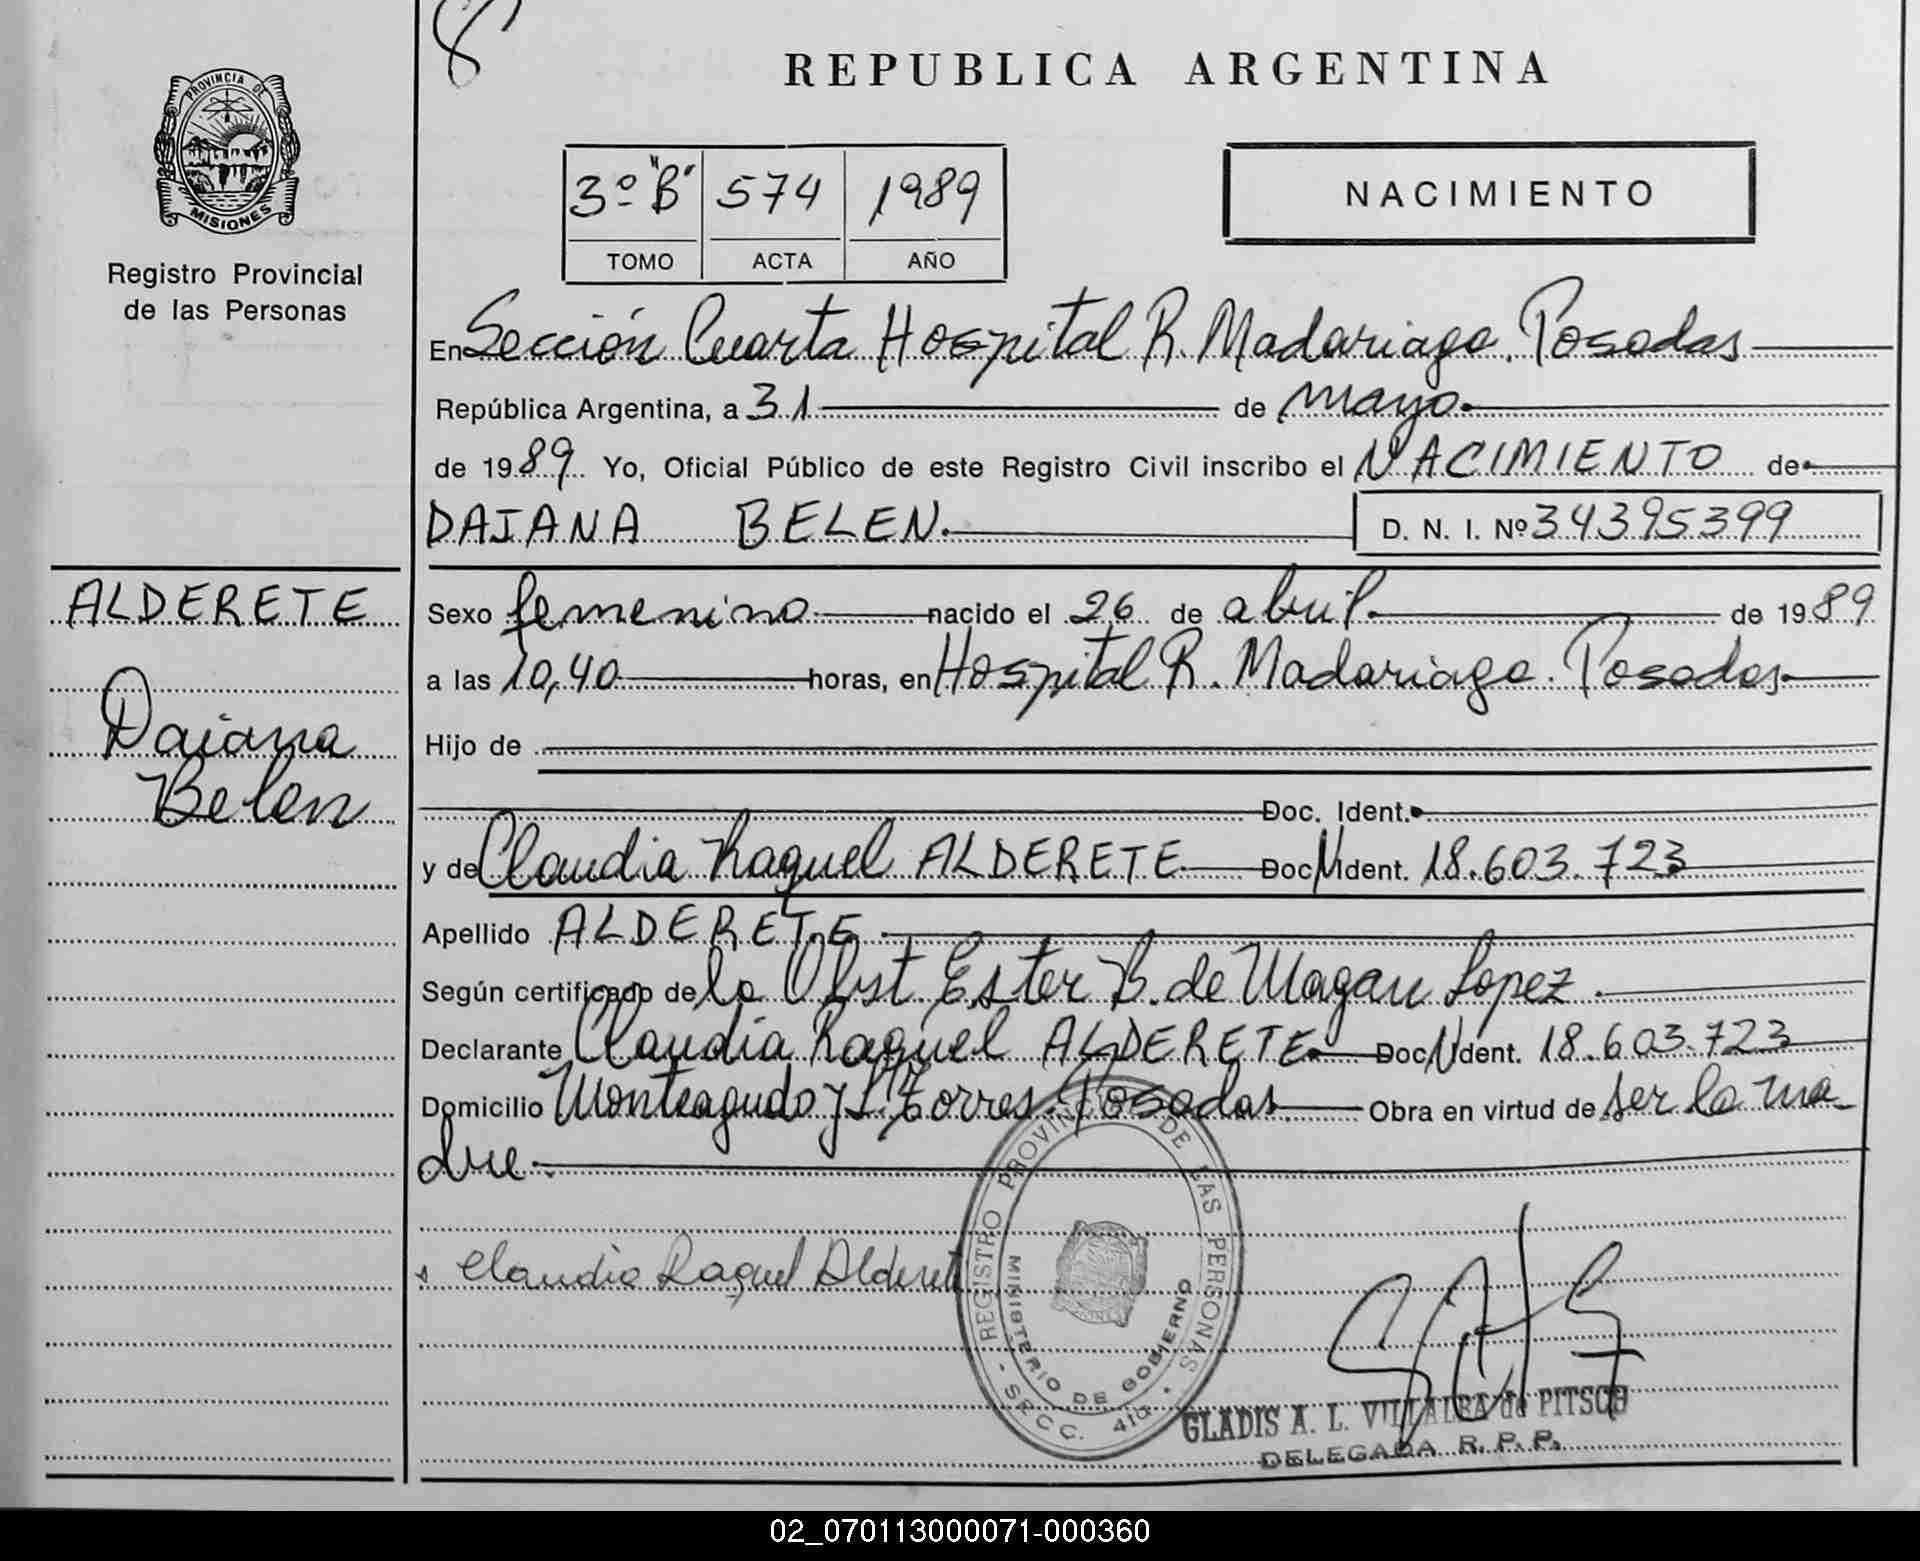 REPUBLICA ARGENTINA
PROVINCIA DE MISIONES
Registro Provincial
de las Personas
3º "B" 574 1989
TOMO ACTA AÑO
NACIMIENTO
En Sección Cuarta Hospital R. Madariaga. Posadas
República Argentina, a 31 de mayo.
de 1989 Yo, Oficial Público de este Registro Civil inscribo el NACIMIENTO de
DAIANA BELEN. D. N. I. Nº 34395399
ALDERETE
Daiana
Belen
Sexo femenino nacido el 26 de abril. de 1989
a las 10,40 horas, en Hospital R. Madariaga. Posadas
Hijo de
Doc. Ident.
y de Claudia Raquel ALDERETE Doc N Ident. 18.603.723
Apellido ALDERETE.
Según certificado de la Obst Ester B. de Magan Lopez.
Declarante Claudia Raquel ALDERETE Doc N Ident. 18.603.723
Domicilio Monteagudo y Torres. Posadas Obra en virtud de ser la ma-
dre.
Claudia Raquel Alderete
REGISTRO PROVINCIAL DE LAS PERSONAS
MINISTERIO DE GOBIERNO
GLADIS A. L. VILLALBA de PITSCH
DELEGADA R. P. P.
02_070113000071-000360